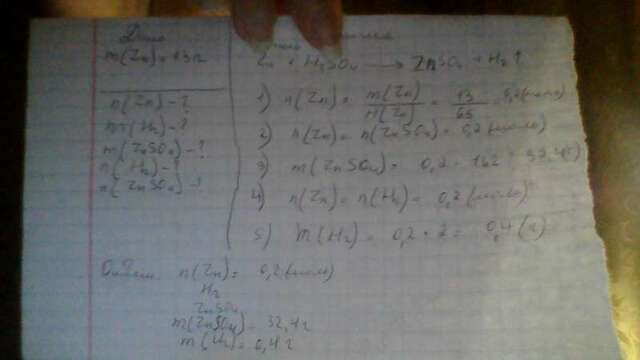 Дано
m(Zn) = 13г
n(Zn) - ?
m(H₂) - ?
m(ZnSO₄) - ?
n(H₂) - ?
n(ZnSO₄) - ?
Zn + H₂SO₄ → ZnSO₄ + H₂↑
1) n(Zn) = m(Zn)/M(Zn) = 13/65 = 0,2 (моль)
2) n(Zn) = n(ZnSO₄) = 0,2 (моль)
3) m(ZnSO₄) = 0,2 · 162 = 32,4(г)
4) n(Zn) = n(H₂) = 0,2 (моль)
5) m(H₂) = 0,2 · 2 = 0,4 (г)
Ответ: n(Zn) = 0,2 (моль)
H₂
ZnSO₄
m(ZnSO₄) = 32,4г
m(H₂) = 0,4г